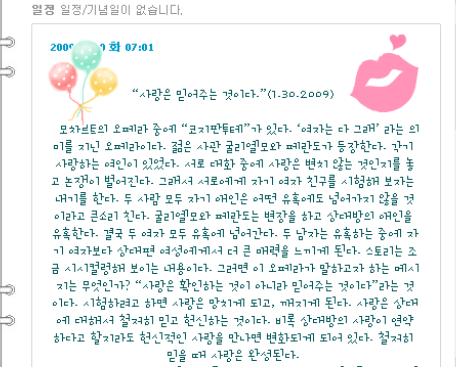 일정 일정/기념일이 없습니다.
화 07:01
“사랑은 믿어주는 것이다.”(1.30.2009)
모차르트의 오페라 중에 “코지판투테”가 있다. ‘여자는 다 그래’ 라는 의
미를 지닌 오페라이다. 젊은 사관 굴리엘모와 페란도가 등장한다. 각기
사랑하는 여인이 있었다. 서로 대화 중에 사랑은 변치 않는 것인지를 놓
고 논쟁이 벌어진다. 그래서 서로에게 자기 여자 친구를 시험해 보자는
내기를 한다. 두 사람 모두 자기 애인은 어떤 유혹에도 넘어가지 않을 것
이라고 큰소리 친다. 굴리엘모와 페란도는 변장을 하고 상대방의 애인을
유혹한다. 결국 두 여자 모두 유혹에 넘어간다. 두 남자는 유혹하는 중에 자
기 여자보다 상대편 여성에게서 더 큰 매력을 느끼게 된다. 스토리는 조
금 시시컬렁해 보이는 내용이다. 그러면 이 오페라가 말하고자 하는 메시
지는 무엇인가? “사랑은 확인하는 것이 아니라 믿어주는 것이다”라는 것
이다. 시험하려고 하면 사랑은 망치게 되고, 깨지게 된다. 사랑은 상대
에 대해서 철저히 믿고 헌신하는 것이다. 비록 상대방의 사랑이 연약
하다고 할지라도 헌신적인 사랑을 만나면 변화되게 되어 있다. 철저히
믿을 때 사랑은 완성된다.